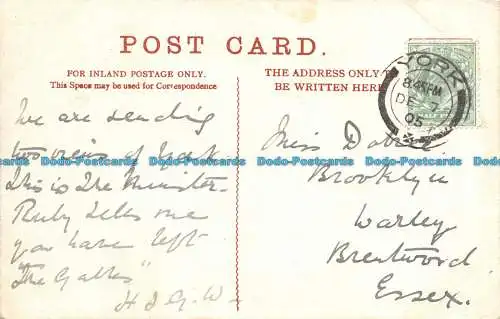 POST CARD.
FOR INLAND POSTAGE ONLY.
This Space may be used for Correspondence
THE ADDRESS ONLY TO
BE WRITTEN HERE
YORK
8.45 PM
DE 7
05
We are sending
two views of York
This is The Minster.
Ruby tells me
you have left
"The Gables"
H J G W
Miss
Brooklyn
Warley
Brentwood
Essex.
Dodo-Postcards Dodo-Postcards Dodo-Postcards Dodo-Postcards Dodo-Postcards Dodo-Postcards